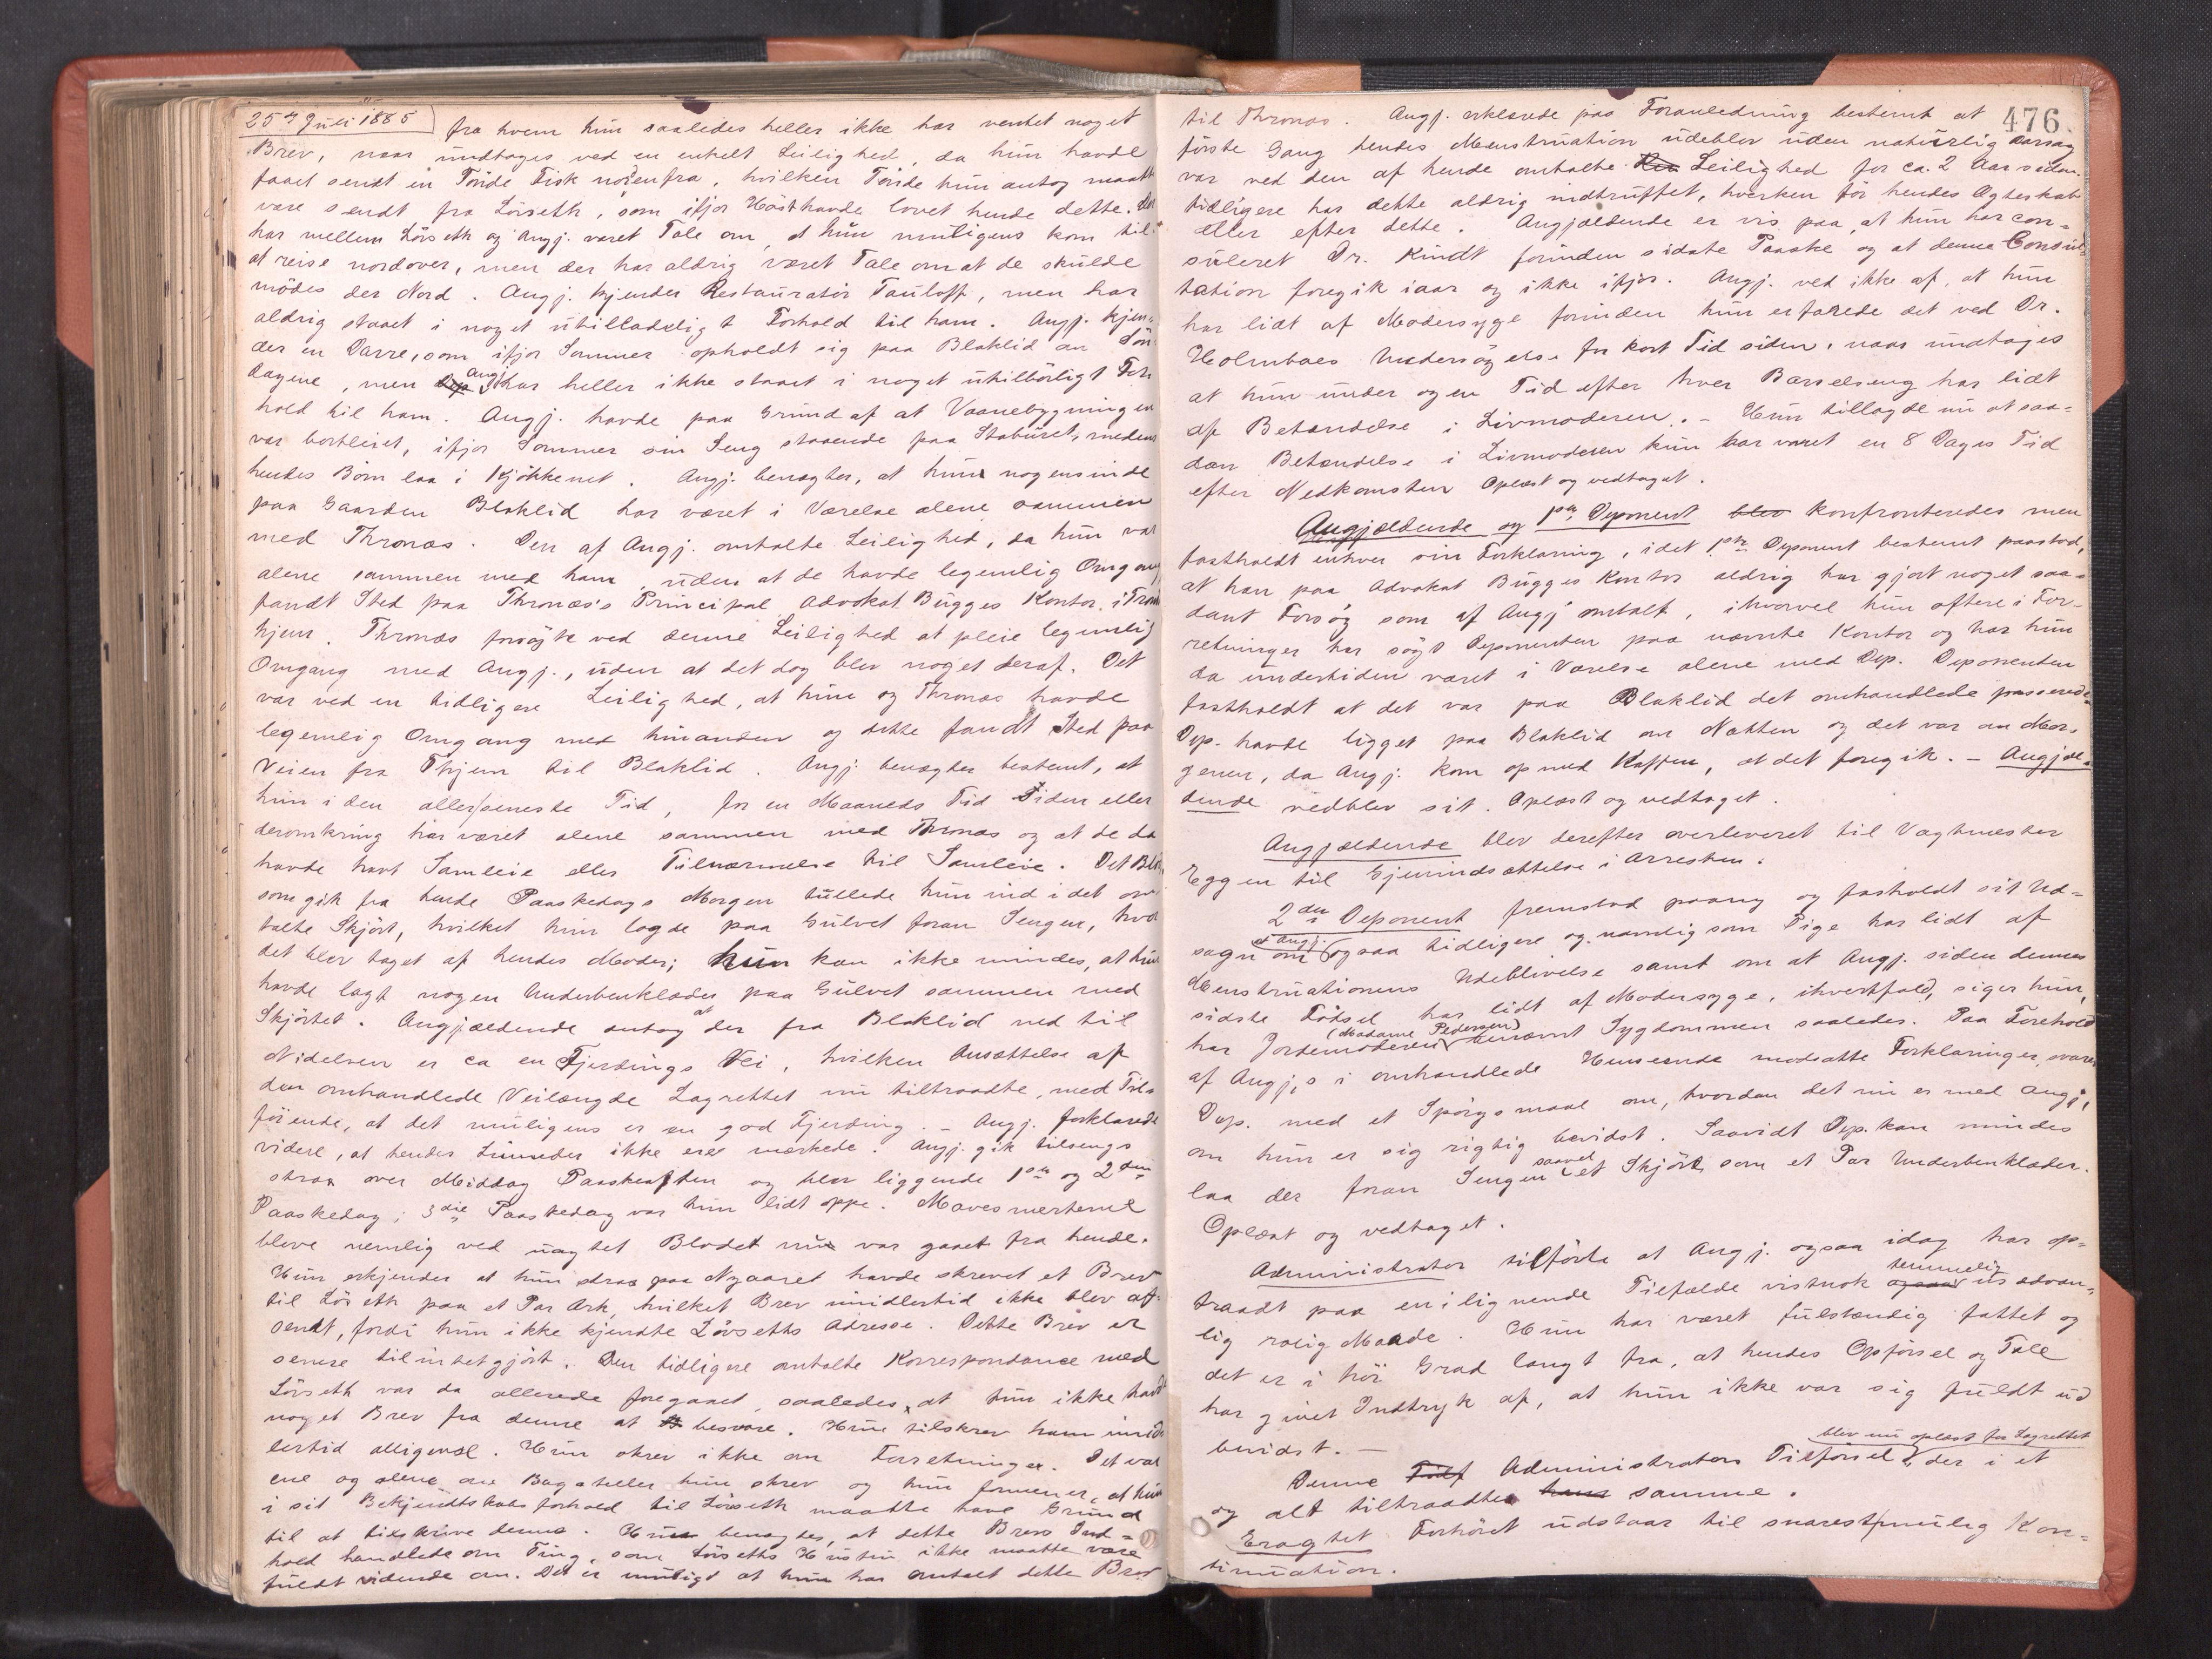 25de Juli 1885
fra hvem hun saaledes heller ikke har ventet noget
Brev, naar undtages ved en enkelt Leilighed, da hun havde
faaet sendt en Tönde Fisk nordenfra, hvilken Tönde hun antog maatte
være sendt fra Lövseth, som ifjor Höst havde lovet hende dette. Der
har mellem Lövseth og Angj. været Tale om, at hun muligens kom til
at reise nordover, men der har aldrig været Tale om at de skulde
mödes der Nord. Angj. kjender Restauratör Tauloff, men har
aldrig staaet i noget utilladeligt Forhold til ham. Angj. kjen-
der en Darre, som ifjor Sommer opholdt sig paa Blaklid om Sön
dagene, men Angj. har heller ikke staaet i noget utilbörligt For
hold til ham. Angj. havde paa Grund af at Vaanebygningen
var bortleiet, ifjor Sommer sin Seng staaende paa Stabüret, medens
hendes Börn laa i Kjökkenet. Angj. benegter, at hun nogensinde
paa Gaarden Blaklid har været i Værelse alene sammen
med Thronæs. Den af Angj. omtalte Leilighed, da hun var
alene sammen med ham, uden at de havde legemlig Omgang
fandt Sted paa Thronæs's Principal Advokat Bügges Kontor i Trond
hjem. Thronæs forsögte ved denne Leilighed at pleie legemlig
Omgang med Angj., uden at det dog blev noget deraf. Det
var ved en tidligere Leilighed, at hun og Thronæs havde
legemlig Omgang med hinanden og dette fandt Sted paa
Veien fra Thjem til Blaklid. Angj. benegter bestemt, at
hun i den allerseneste Tid, for en Maaneds Tid siden eller
deromkring har været alene sammen med Thronæs og at de da
havde havt Samleie eller Tilnærmelse til Samleie. Det Blod,
som gik fra hende Paaskedags Morgen tullede hun ind i det om
talte Skjört, hvilket hun lagde paa Gulvet foran Sengen, hvor
det blev taget af hendes Moder; hun kan ikke mindes, at hun
havde lagt nogen Underbenklæder paa Gulvet sammen med
Skjörtet. Angjældende antog at der fra Blaklid ned til
Nidelven er ca en Fjerdings Vei, hvilken Ansættelse af
den omhandlede Veilængde Lagrettet nu tiltraadte, med Til-
föiende, at det muligens er en god Fjerding. - Angj. forklarede
videre, at hendes Linneder ikke ere mærkede. Angj. gik tilsengs
strax over Middag Paaskeaften og blev liggende 1ste og 2den
Paaskedag; 3die Paaskedag var hun lidt oppe. Mavesmerterne
bleve nemlig ved uagtet Blodet nu var gaaet fra hende.
Hun erkjender at hun strax paa Nyaaret havde skrevet et Brev
til Lövseth paa et Par Ark, hvilket Brev imidlertid ikke blev af-
sendt, fordi hun ikke kjendte Lövseths Adresse. Dette Brev er
senere tilintetgjort. Den tidligere omtalte Korrespondance med
Lövseth var da allerede foregaaet, saaledes at hun ikke havde
noget Brev fra denne at besvare. Hun tilskrev ham imid
lertid alligevel. Hun skrev ikke om Forretninger. Det var
ene og alene om Bagateller hun skrev og hun formener, at hun
i sit Bekjendtskabsforhold til Lövseth maatte have Grund
til at tilskrive denne. Hun benegtes, at dette Brevs Ind-
hold handlede om Ting, som Lövseths Hustru ikke maatte være
fuldt vidende om. Det er muligt at hun har omtalt dette Brev
476
til Thronæs. Angj. erklærede paa Foranledning bestemt at
förste Gang hendes Menstruation udeblev uden naturlig Aarsag
var ved den af hende omtalte Leilighed for ca. 2 Aar siden.
tidligere har dette aldrig indtruffet, hverken för hendes Ægteskab
eller efter dette. Angjældende er vis paa, at hun har con-
suleret Dr. Kindt forinden sidste Paaske og at denne Consul-
tation foregik iaar og ikke ifjor. Angj. ved ikke af, at hun
har lidt af Modersyge forinden hun erfarede det ved Dr.
Holmboes Undersögelse for kort Tid siden, naar undtages
at hun under og en Tid efter hver Barselseng har lidt
af Betændelse i Livmoderen. - Hun tillagde nu at saa-
dan Betændelse i Livmoderen kun har varet en 8 Dages Tid
efter Nedkomsten Oplæst og vedtaget.
Angjældende og 1ste Deponent blev konfronteredes men
fastholdt enhver sin Forklaring, idet 1ste Deponent bestemt paastod,
at han paa Advokat Bügges Kontor aldrig har gjort noget saa-
dant Forsög som af Angj. omtalt, ihvorvel hun oftere i For-
retninger har sögt Deponenten paa nævnte Kontor og har hun
da undertiden været i Værelse alene med Dep. Deponenten
fastholdt at det var paa Blaklid det omhandlede passerede.
Dep. havde ligget paa Blaklid om Natten og det var om Mor-
genen, da Angj. kom op med Kaffen, at det foregik. - Angjæl-
dende vedblev sit. Oplæst og vedtaget.
Angjældende blev derefter overleveret til Vagtmester
Eggen til Gjenindsættelse i Arresten.
2den Deponent fremstod paany og fastholdt sit Ud-
sagn om at Angj. ogsaa tidligere og navnlig som Pige har lidt af
Menstruationens Udeblivelse samt om at Angj. siden dennes
sidste Födsel har lidt af Modersyge, ihvertfald, siger hun,
har Jordemoderen (Madame Pedersen) benævnt Sygdommen saaledes. Paa Forehold
af Angj.s i omhandlede Henseende modsatte Forklaringer, svarer
Dep. med et Spörgsmaal om, hvordan det nu er med Angj.,
om hun er sig rigtig bevidst. Saavidt Dep. kan mindes
laa der foran Sengen saavel et Skjört som et Par Underbenklæder.
Oplæst og vedtaget.
Administrator tilförte at Angj. ogsaa idag har op-
traadt paa en i lignende Tilfælde vistnok temmelig usædvan-
lig rolig Maade. Hun har været fuldstændig fattet og
det er i höi Grad langt fra, at hendes Opförsel og Tale
har givet Indtryk af, at hun ikke var sig fuldt ud
bevidst. -
Denne Administrators Tilförsel blev nu oplæst for Lagrettet, der i et
og alt tiltraadte samme.
Eragtet Forhöret udstaar til snarest mulig Kon-
tinuation.